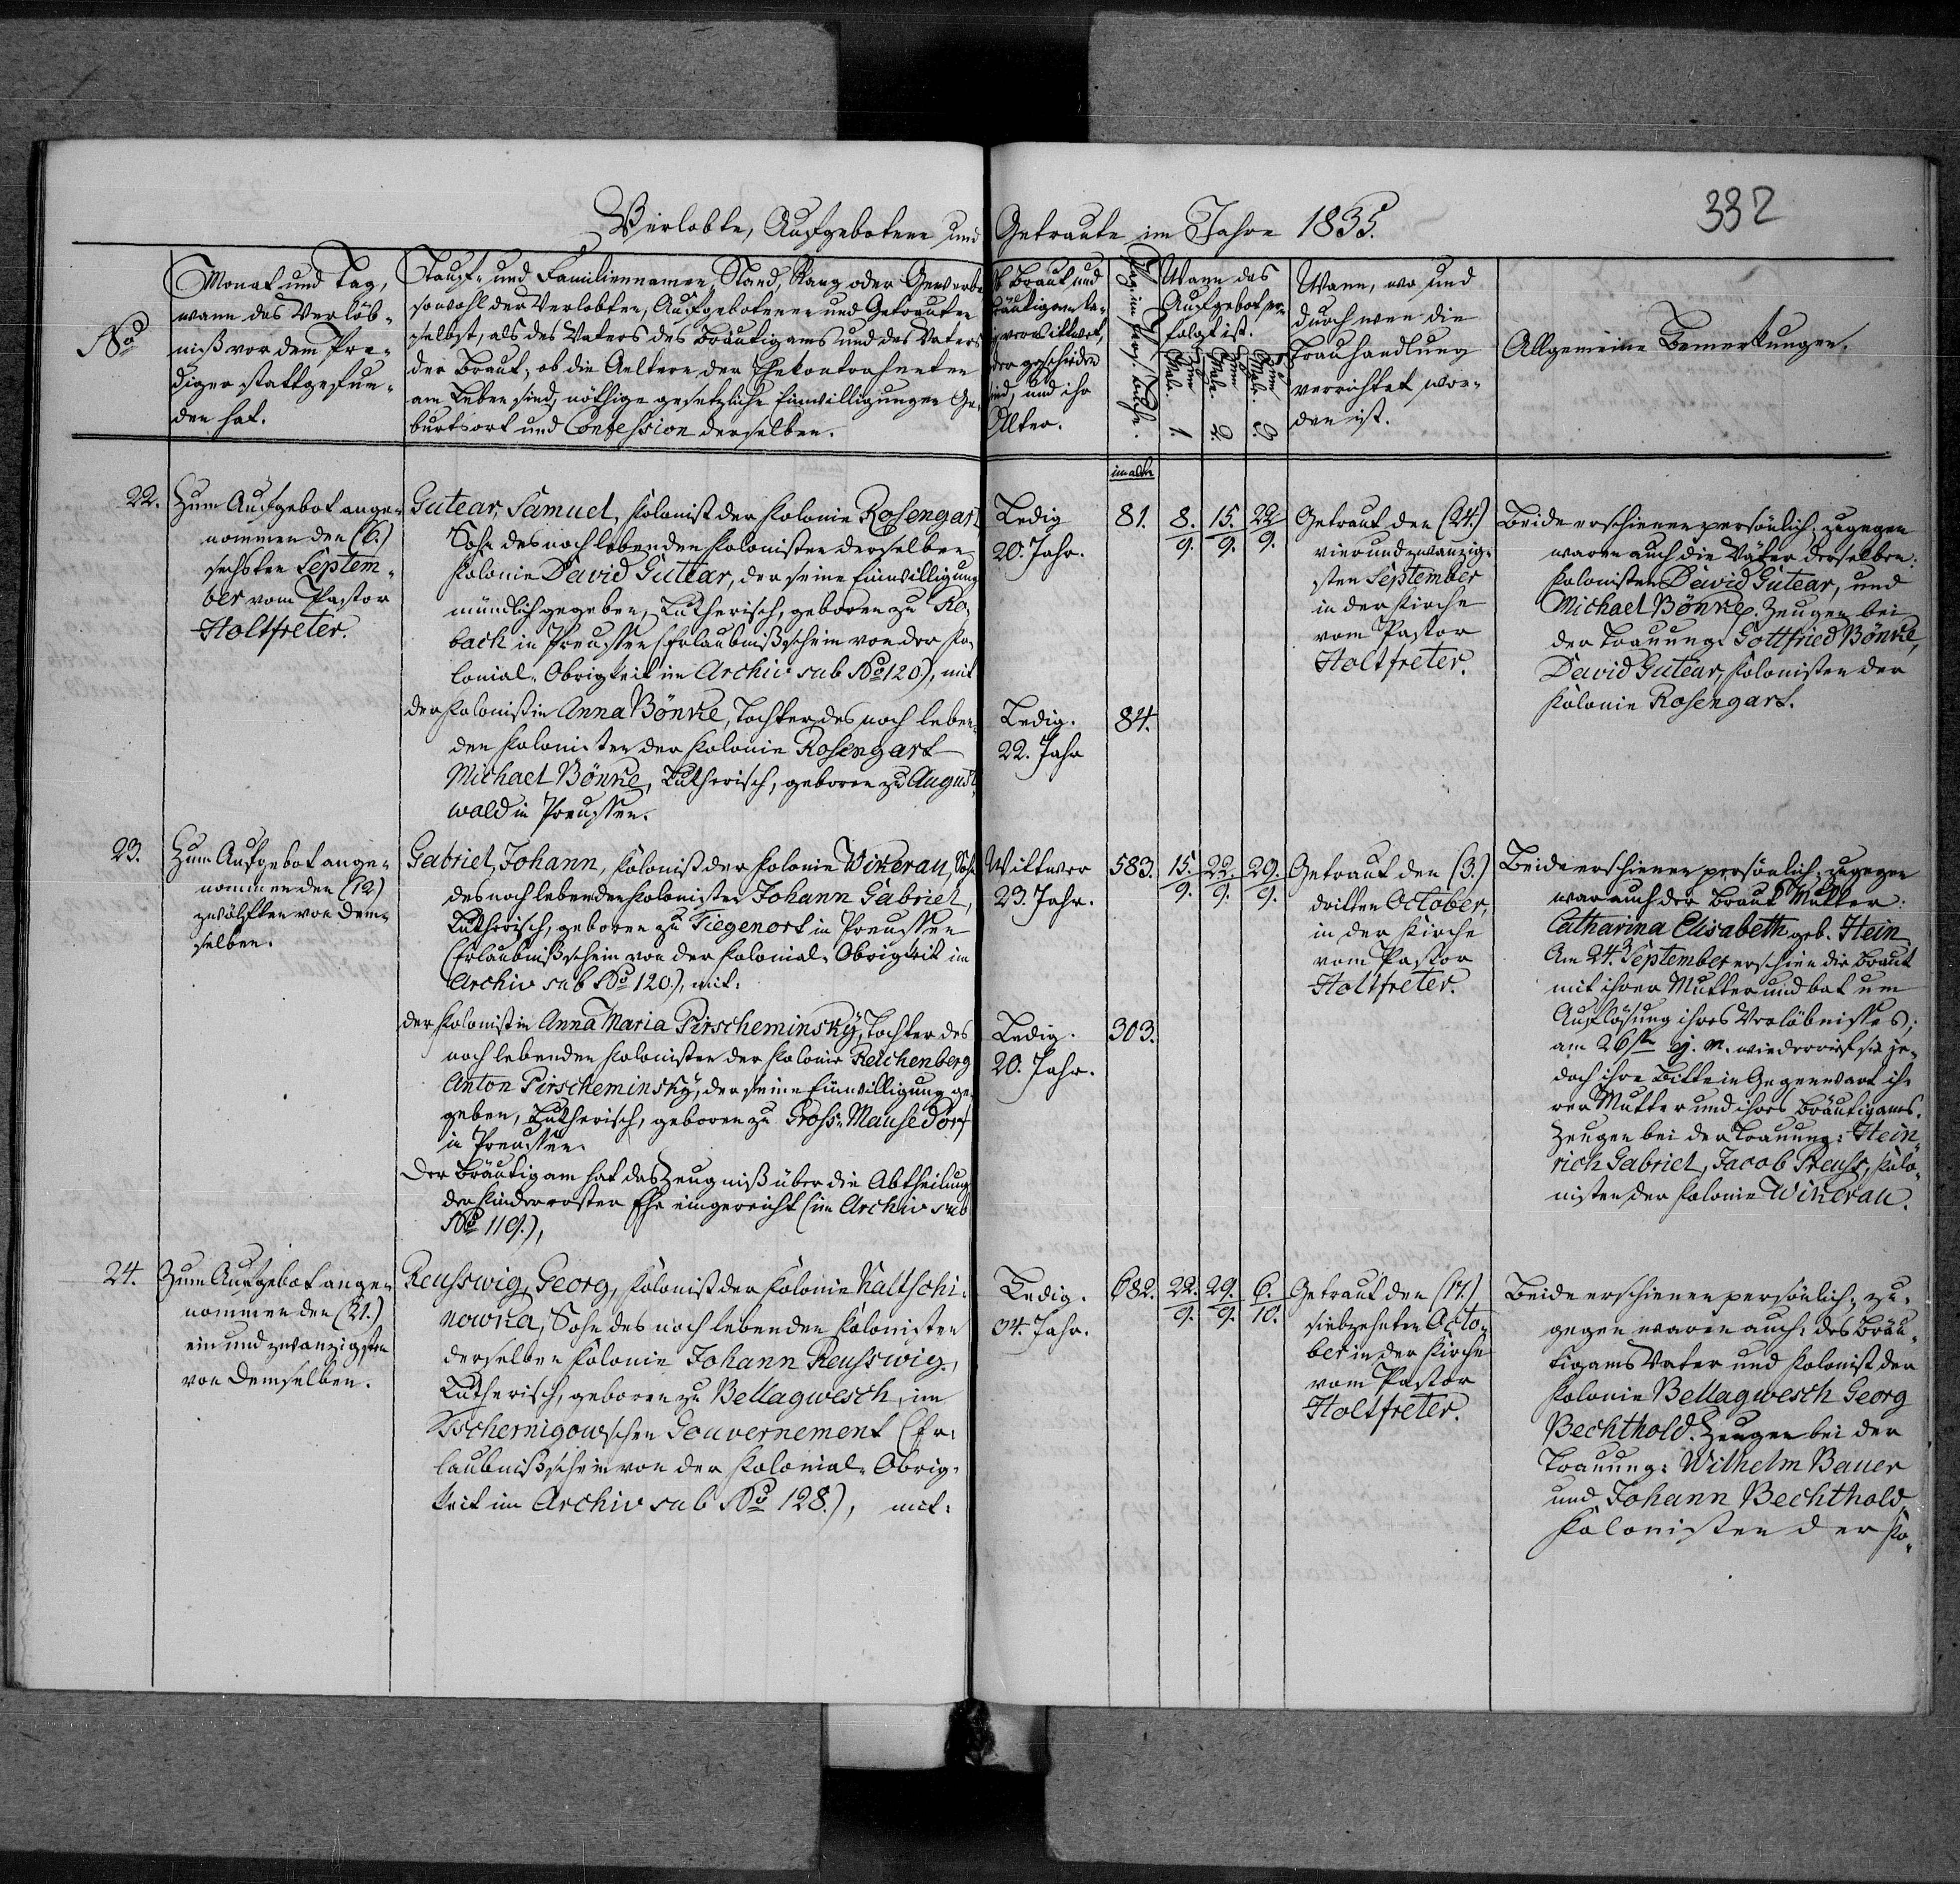 332
Verlobte, Aufgebotene und Getraute im Jahre 1835.
No
Monat und Tag,
wann das Verlöb-
niß vor dem Pre-
diger stattgefun-
den hat.
Tauf- und Familiennamen, Stand, Rang oder Gewerbe
sowohl der Verlobten, Aufgebotenen und Getrauten
selbst, als des Vaters des Bräutigams und des Vaters
der Braut, ob die Aeltern der Ehekontrahenten
am Leben sind, nöthige gesetzliche Einwilligungen Ge-
burtsort und Confession derselben.
Braut und
Bräutigam le-
verwittwet,
oder geschieden
sind, und ihr
Alter.
Wann das
Aufgebot er-
folgt ist.
Zum 1. Male.
Zum 2. Male.
Zum 3. Male.
Wann, wo und
durch wen die
Trauhandlung
verrichtet wor-
den ist.
Allgemeine Bemerkungen.
22.
Zum Aufgebot ange-
nommen den (6.)
sechsten Septem-
ber vom Pastor
Holtfreter.
Gutear, Samuel, Kolonist der Kolonie Rosengart
Sohn des noch lebenden Kolonisten derselben
Kolonie David Gutear, der seine Einwilligung
mündlich gegeben, Lutherisch, geboren zu Ro-
back in Preussen (Erlaubnißschein von der Ko-
lonial-Obrigkeit im Archiv sub No 120.), mit
der Kolonistin Anna Bönke, Tochter des noch leben-
den Kolonisten der Kolonie Rosengart
Michael Bönke, Lutherisch, geboren zu August-
wald in Preussen.
Ledig
20. Jahr.
Ledig.
22. Jahr
81.
84.
8.
9.
15.
9.
22
9.
Getraut den (24.)
vierundzwanzig-
sten September
in der Kirche
vom Pastor
Holtfreter.
Beide erschienen persönlich; zugegen
waren auch die Väter derselben:
Kolonisten David Gutear, und
Michael Bönke. Zeugen bei
der Trauung: Gottfried Bönke,
David Gutear, Kolonisten der
Kolonie Rosengart.
23.
Zum Aufgebot ange-
nommen den (12.)
zwölften von dem-
selben.
Gabriel, Johann, Kolonist der Kolonie Wikerau, Sohn
des noch lebenden Kolonisten Johann Gabriel,
Lutherisch, geboren zu Tiegenort in Preussen
(Erlaubnißschein von der Kolonial-Obrigkeit im
Archiv sub No 120.), mit:
der Kolonistin Anna Maria Pirscheminsky, Tochter des
noch lebenden Kolonisten der Kolonie Reichenberg
Anton Pirscheminsky, der seine Einwilligung ge-
geben, Lutherisch, geboren zu Gross-Mausedorf
in Preussen.
Der Bräutigam hat das Zeugniß über die Abtheilung
der Kinder erster Ehe eingereicht (im Archiv sub
No 119.),
Wittwer
23. Jahr.
Ledig.
20. Jahr.
583.
303.
15.
9.
22.
9.
29.
9.
Getraut den (3.)
dritten October,
in der Kirche
vom Pastor
Holtfreter.
Beide erschienen persönlich; zugegen
war auch der Braut Mutter:
Catharina Elisabeth geb. Hein
Am 24. September erschien die Braut
mit ihrer Mutter und bat um
Auflösung ihres Verlöbnisses;
am 26sten ej. m. wiederrief sie je-
doch ihre Bitte in Gegenwart ih-
rer Mutter und ihres Bräutigams.
Zeugen bei der Trauung: Hein-
rich Gabriel, Jacob Preuss, Kolo-
nisten der Kolonie Wikerau.
24.
Zum Aufgebot ange-
nommen den (21.)
ein und zwanzigsten
von demselben.
Reusswig, Georg, Kolonist der Kolonie Kaltschi-
nowka, Sohn des noch lebenden Kolonisten
derselben Kolonie Johann Reusswig,
Lutherisch, geboren zu Bellagwesch, im
Tschernigowschen Gouvernement (Er-
laubnißschein von der Kolonial-Obrig-
keit im Archiv sub No 128.), mit:
Ledig.
34. Jahr.
682.
22.
9.
29.
9.
6.
10.
Getraut den (17.)
siebzehnten Octo-
ber in der Kirche
vom Pastor
Holtfreter.
Beide erschienen persönlich; zu-
gegen waren auch: des Bräu-
tigams Vater und Kolonist der
Kolonie Bellagwesch Georg
Bechthold. Zeugen bei der
Trauung: Wilhelm Bauer
und Johann Bechthold,
Kolonisten der Ko-